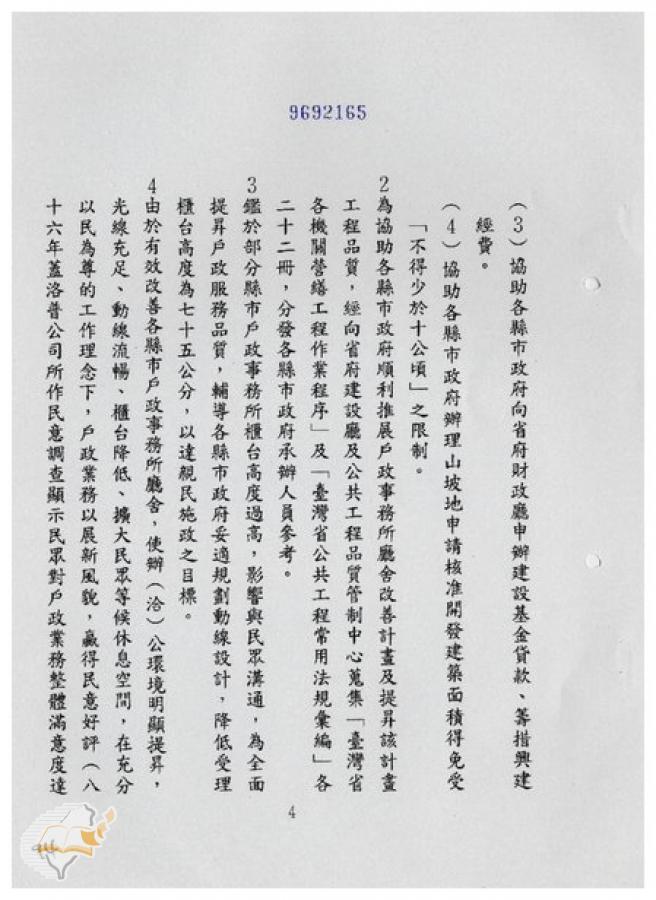 9692165
（3）協助各縣市政府向省府財政廳申辦建設基金貸款、籌措興建
經費。
（4）協助各縣市政府辦理山坡地申請核准開發建築面積得免受
「不得少於十公頃」之限制。
2為協助各縣市政府順利推展戶政事務所廳舍改善計畫及提昇該計畫
工程品質，經向省府建設廳及公共工程品質管制中心蒐集「臺灣省
各機關營繕工程作業程序」及「臺灣省公共工程常用法規彙編」各
二十二冊，分發各縣市政府承辦人員參考。
3鑑於部分縣市戶政事務所櫃台高度過高，影響與民眾溝通，為全面
提昇戶政服務品質，輔導各縣市政府妥適規劃動線設計，降低受理
櫃台高度為七十五公分，以達親民施政之目標。
4由於有效改善各縣市戶政事務所廳舍，使辦（洽）公環境明顯提昇，
光線充足、動線流暢、櫃台降低、擴大民眾等候休息空間，在充分
以民為尊的工作理念下，戶政業務以展新風貌，贏得民意好評（八
十六年蓋洛普公司所作民意調查顯示民眾對戶政業務整體滿意度達
4